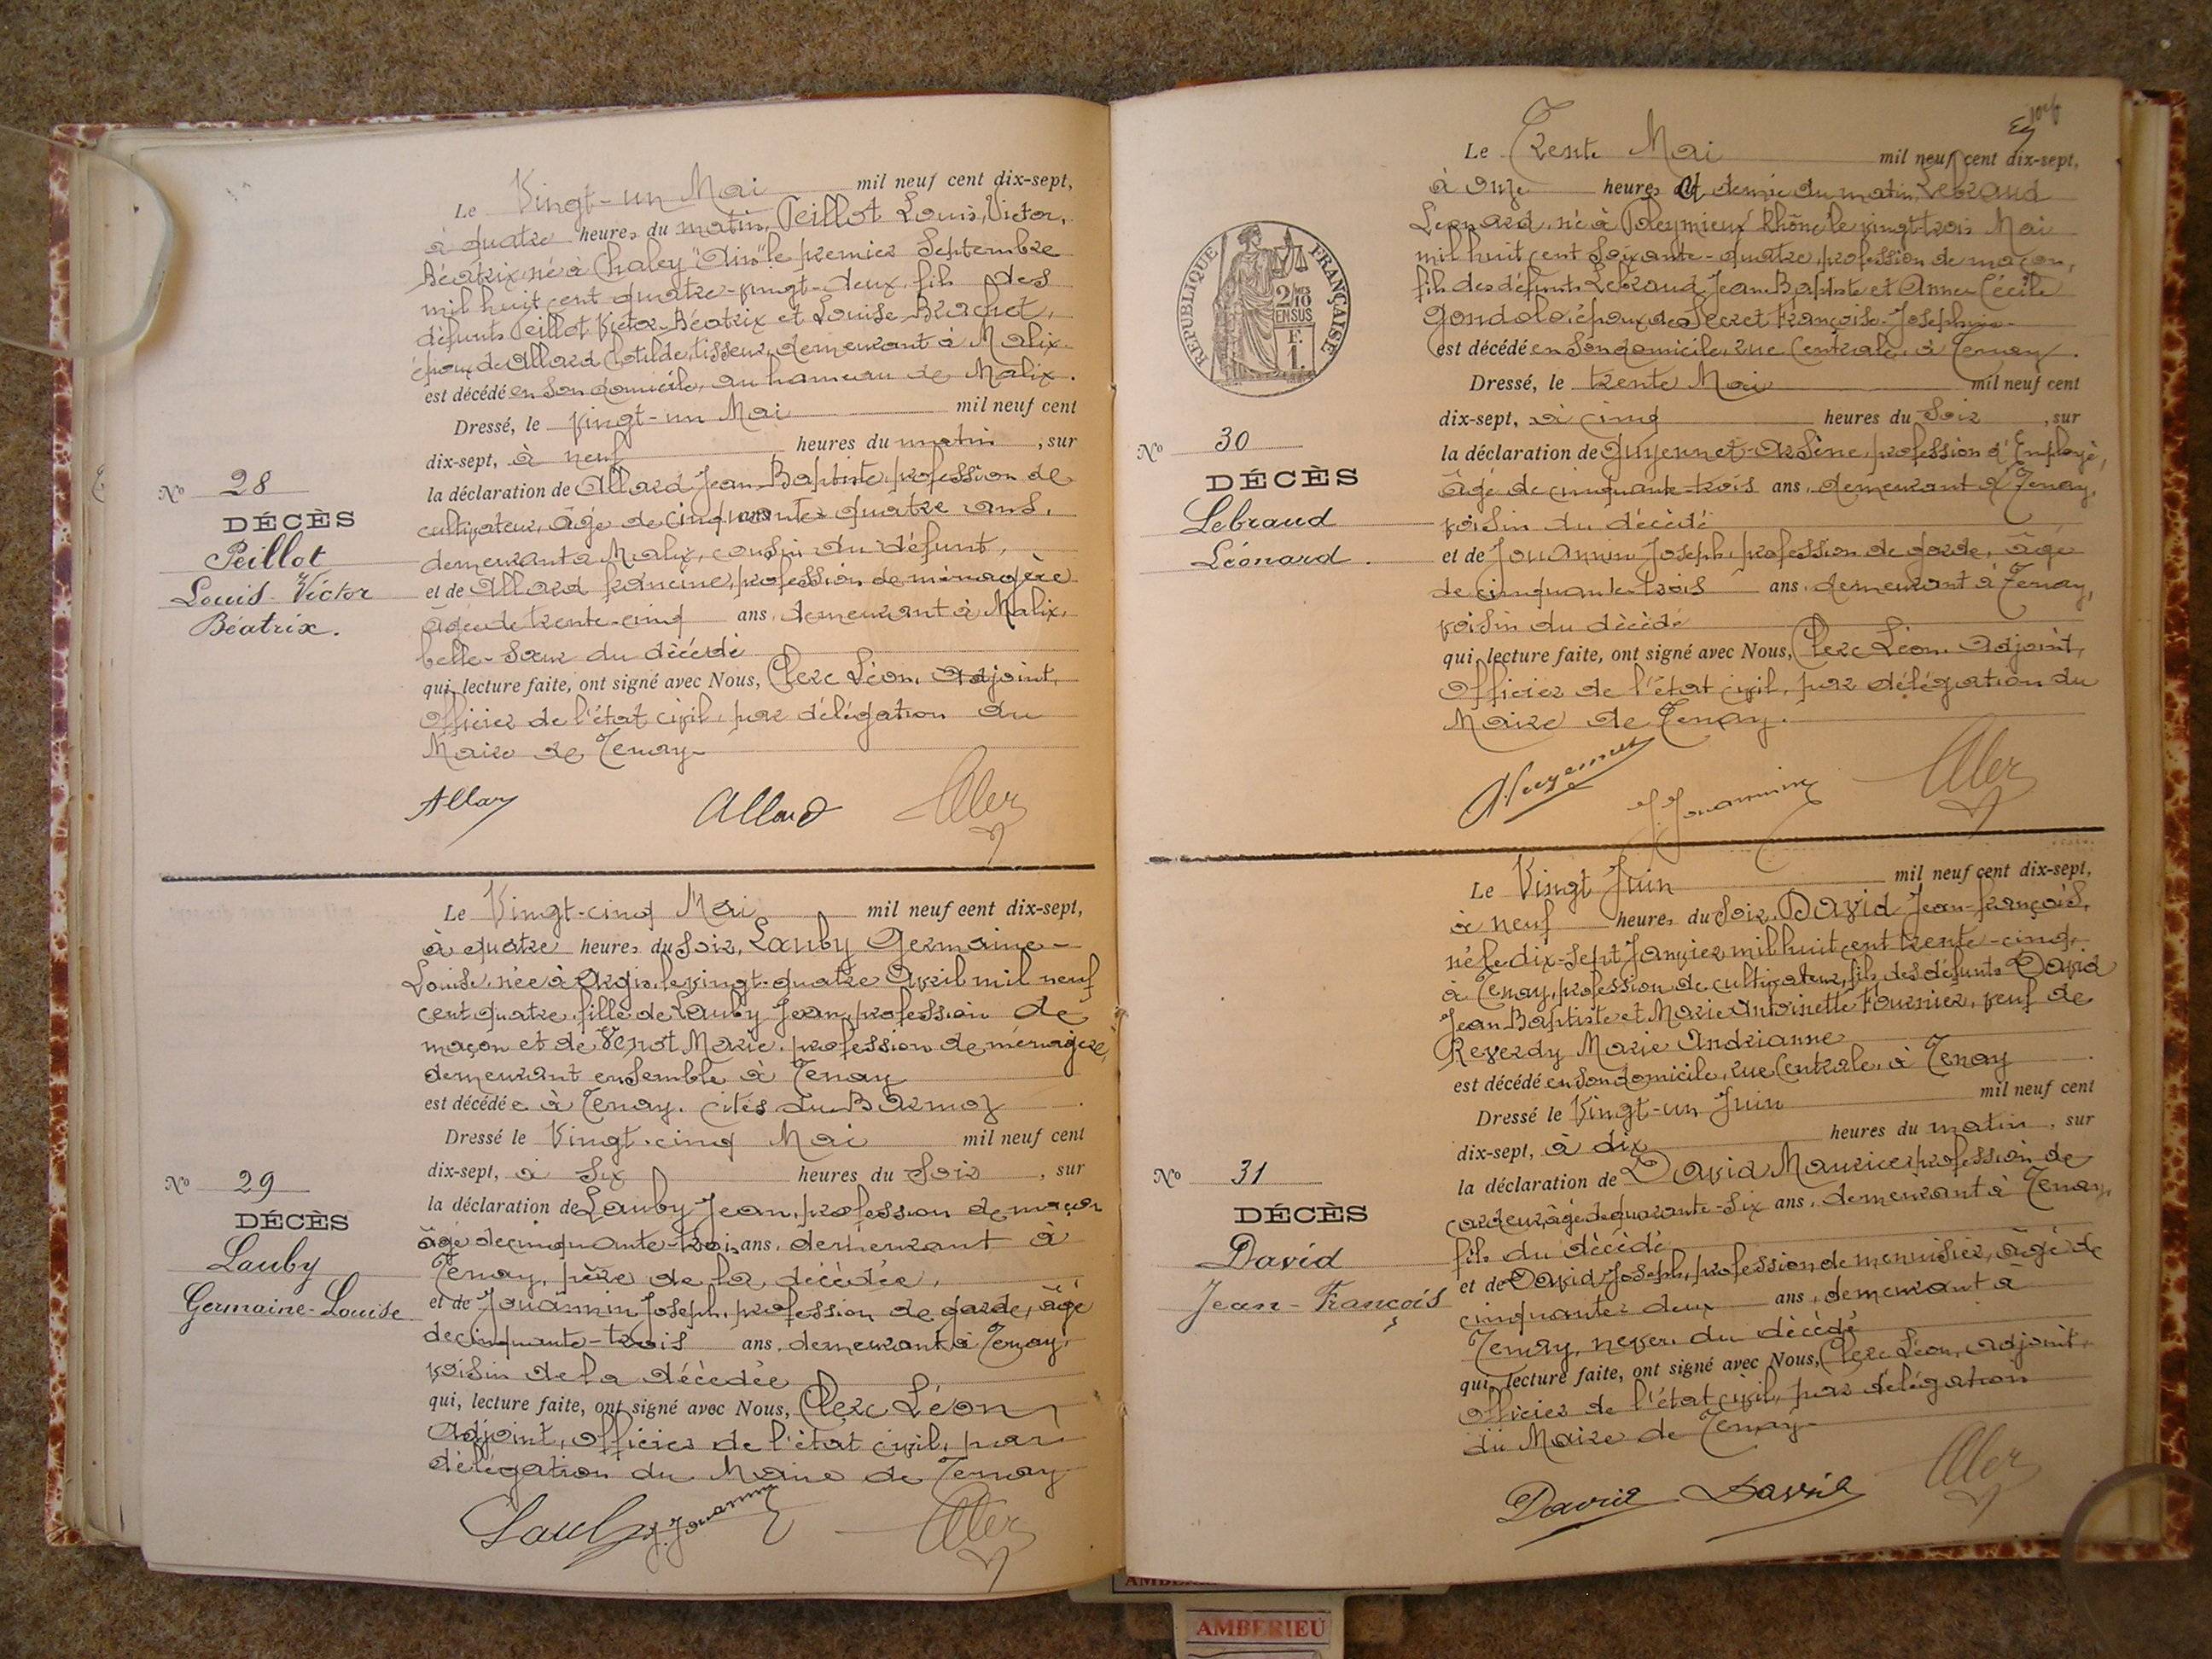 Le Vingt-un Mai mil neuf cent dix-sept,
à quatre heures du matin, Peillot Louis, Victor,
Béatrix, né à Chaley "Ain" le premier Septembre
mil huit cent quatre-vingt-deux, fils des
défunts Peillot Victor-Béatrix et Louise Brachet,
époux de Allard Clotilde, tisseur, demeurant à Malix
est décédé en son domicile, au hameau de Malix.
Dressé, le vingt-un Mai mil neuf cent
dix-sept, à neuf heures du matin, sur
la déclaration de Allard Jean-Baptiste, profession de
cultivateur, âgé de cinquante quatre ans,
demeurant à Malix, cousin du défunt,
et de Allard Francine, profession de ménagère
âgée de trente-cinq ans, demeurant à Malix,
belle-sœur du décédé
qui, lecture faite, ont signé avec Nous, Clerc Léon, Adjoint,
Officier de l'état civil, par délégation du
Maire de Tenay
Allard
No 28
DÉCÈS
Peillot
Louis-Victor
Béatrix.
Le Vingt-cinq Mai mil neuf cent dix-sept,
à quatre heures du Soir, Lauby Germaine-
Louise, née à Argis, le vingt-quatre Avril mil neuf
cent quatre, fille de Lauby Jean, profession de
maçon et de Venot Marie, profession de ménagère,
demeurant ensemble à Tenay
est décédée à Tenay, cités du Barmoz.
Dressé le Vingt-cinq Mai mil neuf cent
dix-sept, à Six heures du Soir, sur
la déclaration de Lauby Jean, profession de maçon
âgé de cinquante-trois ans, demeurant à
Tenay, père de la décédée,
et de Jouannin Joseph, profession de garde, âgé
de cinquante-trois ans, demeurant à Tenay,
voisin de la décédée
qui, lecture faite, ont signé avec Nous, Clerc Léon,
Adjoint, Officier de l'état civil, par
délégation du Maire de Tenay
Lauby J. Jouannin
No 29
DÉCÈS
Lauby
Germaine-Louise
Le Trente Mai mil neuf cent dix-sept,
à onze heures et demie du matin, Lebraud
Léonard, né à Poleymieux Rhône le vingt-trois Mai
mil huit cent soixante-quatre, profession de maçon,
fils des défunts Lebraud Jean-Baptiste et Anne-Cécile
Gondolo, époux de Secret Françoise-Joséphine
est décédé en son domicile, rue Centrale, à Tenay.
Dressé, le trente Mai mil neuf cent
dix-sept, à cinq heures du Soir, sur
la déclaration de Guyennet Arsène, profession d'Employé,
âgé de cinquante-trois ans, demeurant à Tenay,
voisin du décédé
et de Jouannin Joseph, profession de garde, âgé
de cinquante-trois ans, demeurant à Tenay,
voisin du décédé
qui, lecture faite, ont signé avec Nous, Clerc Léon, Adjoint,
Officier de l'état civil, par délégation du
Maire de Tenay.
J. Jouannin
RÉPUBLIQUE FRANÇAISE
2/10
EN SUS
No 30
DÉCÈS
Lebraud
Léonard.
Le Vingt Juin mil neuf cent dix-sept,
à neuf heures du Soir, David Jean-François,
né le dix-sept Janvier mil huit cent trente-cinq,
à Tenay, profession de cultivateur, fils des défunts David
Jean Baptiste et Marie Antoinette Fournier, veuf de
Reverdy Marie Andrianne
est décédé en son domicile, rue Centrale, à Tenay.
Dressé le Vingt-un Juin mil neuf cent
dix-sept, à dix heures du matin, sur
la déclaration de David Maurice, profession de
cardeur, âgé de quarante-six ans, demeurant à Tenay,
fils du décédé
et de David Joseph, profession de menuisier, âgé de
cinquante-deux ans, demeurant à
Tenay, neveu du décédé
qui, lecture faite, ont signé avec Nous, Clerc Léon, Adjoint,
Officier de l'état civil, par délégation
du Maire de Tenay
David David
No 31
DÉCÈS
David
Jean-François
AMBERIEU